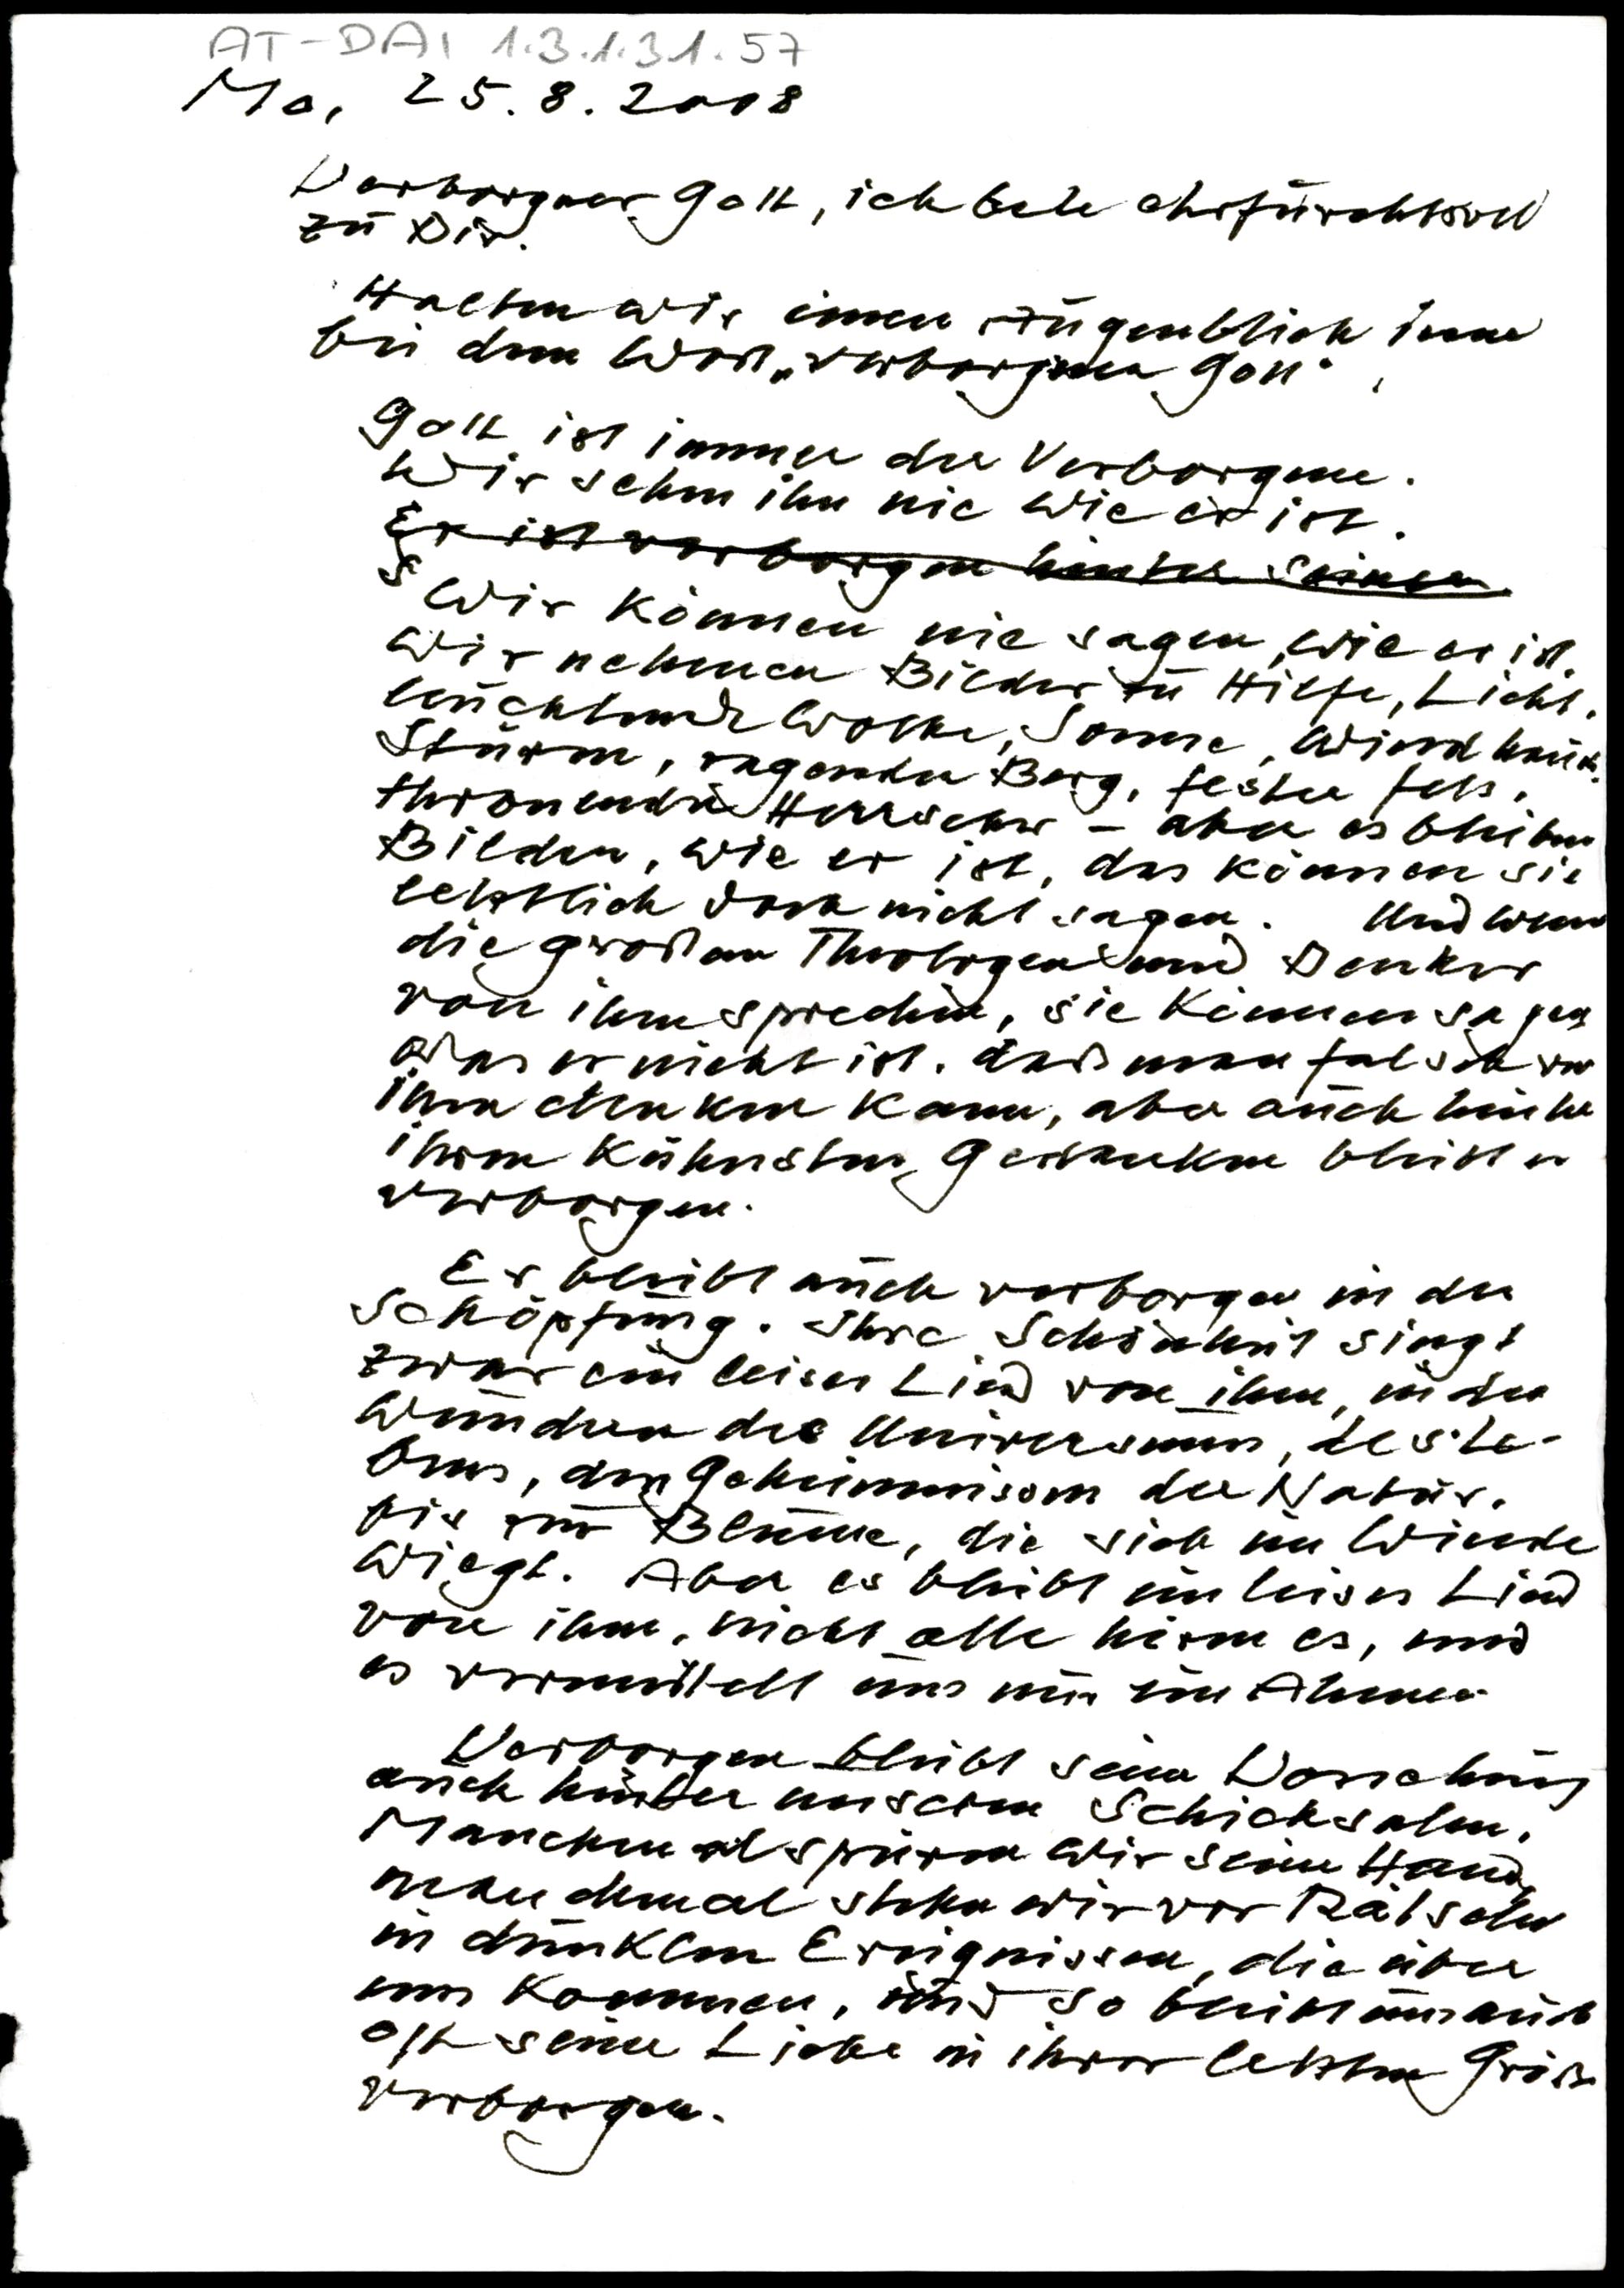 AT-DAI 1.3.1.31.57
Mo, 25.8.2008
Verborgner Gott, ich bete ehrfürchtsvoll
zu Dir.
Halten wir einen Augenblick inne
bei dem Wort „verborgener Gott“.
Gott ist immer der Verborgene.
Wir sehen ihn nie wie er ist.
Er ist verborgen hinter seinen
Wir können nie sagen, wie er ist.
Wir nehmen Bilder zu Hilfe, Licht,
leuchtende Wolke, Sonne, Windhauch,
Sturm, ragender Berg, fester Fels,
thronender Herrscher – aber es bleiben
Bilder, wie er ist, das können sie
letztlich doch nicht sagen. Und wenn
die großen Theologen und Denker
von ihm sprechen, sie können sagen
was er nicht ist, daß man falsch von
ihm denken kann, aber auch hinter
ihren kühnsten Gedanken bleibt er
verborgen.
Er bleibt auch verborgen in der
Schöpfung. Ihre Schönheit singt
zwar ein leises Lied von ihm, in den
Wundern des Universums, des Le-
bens, den Geheimnissen der Natur,
bis zur Blume, die sich im Winde
wiegt. Aber es bleibt ein leises Lied
von ihm, nicht alle hören es, und
es vermittelt uns nur ein Ahnen
Verborgen bleibt seine Vorsehung
auch hinter unseren Schicksalen.
Manchmal spüren wir seine Hand,
manchmal stehen wir vor Rätseln
in dunklen Ereignissen, die über
uns kommen, und so bleibt uns auch
oft seine Liebe in ihrer letzten Größe
verborgen.